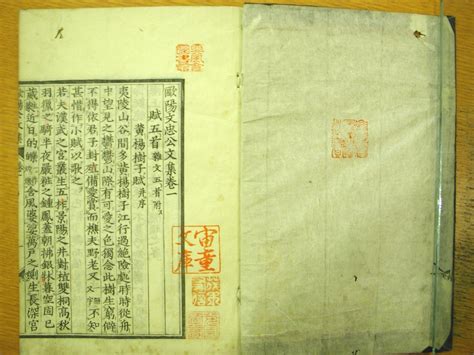 歐陽文忠公文集卷一
賦五首 雜文五首附
黃楊樹子賦 并序
夷陵山谷間多黃楊樹子江行過絶險處時時從舟
中望見之鬱鬱山際有可愛之色獨念此樹生窮僻
不得依君子封殖備愛賞而樵夫野老又不知
甚惜作小賦以歌之
若夫漢武之宮叢生五柞景陽之井對植雙桐高秋
羽獵之騎半夜嚴粧之鐘鳳蓋朝拂銀牀暮空固已
葳蕤近日的皪含風婆娑萬戶之側生長深宮
宙童
文庫